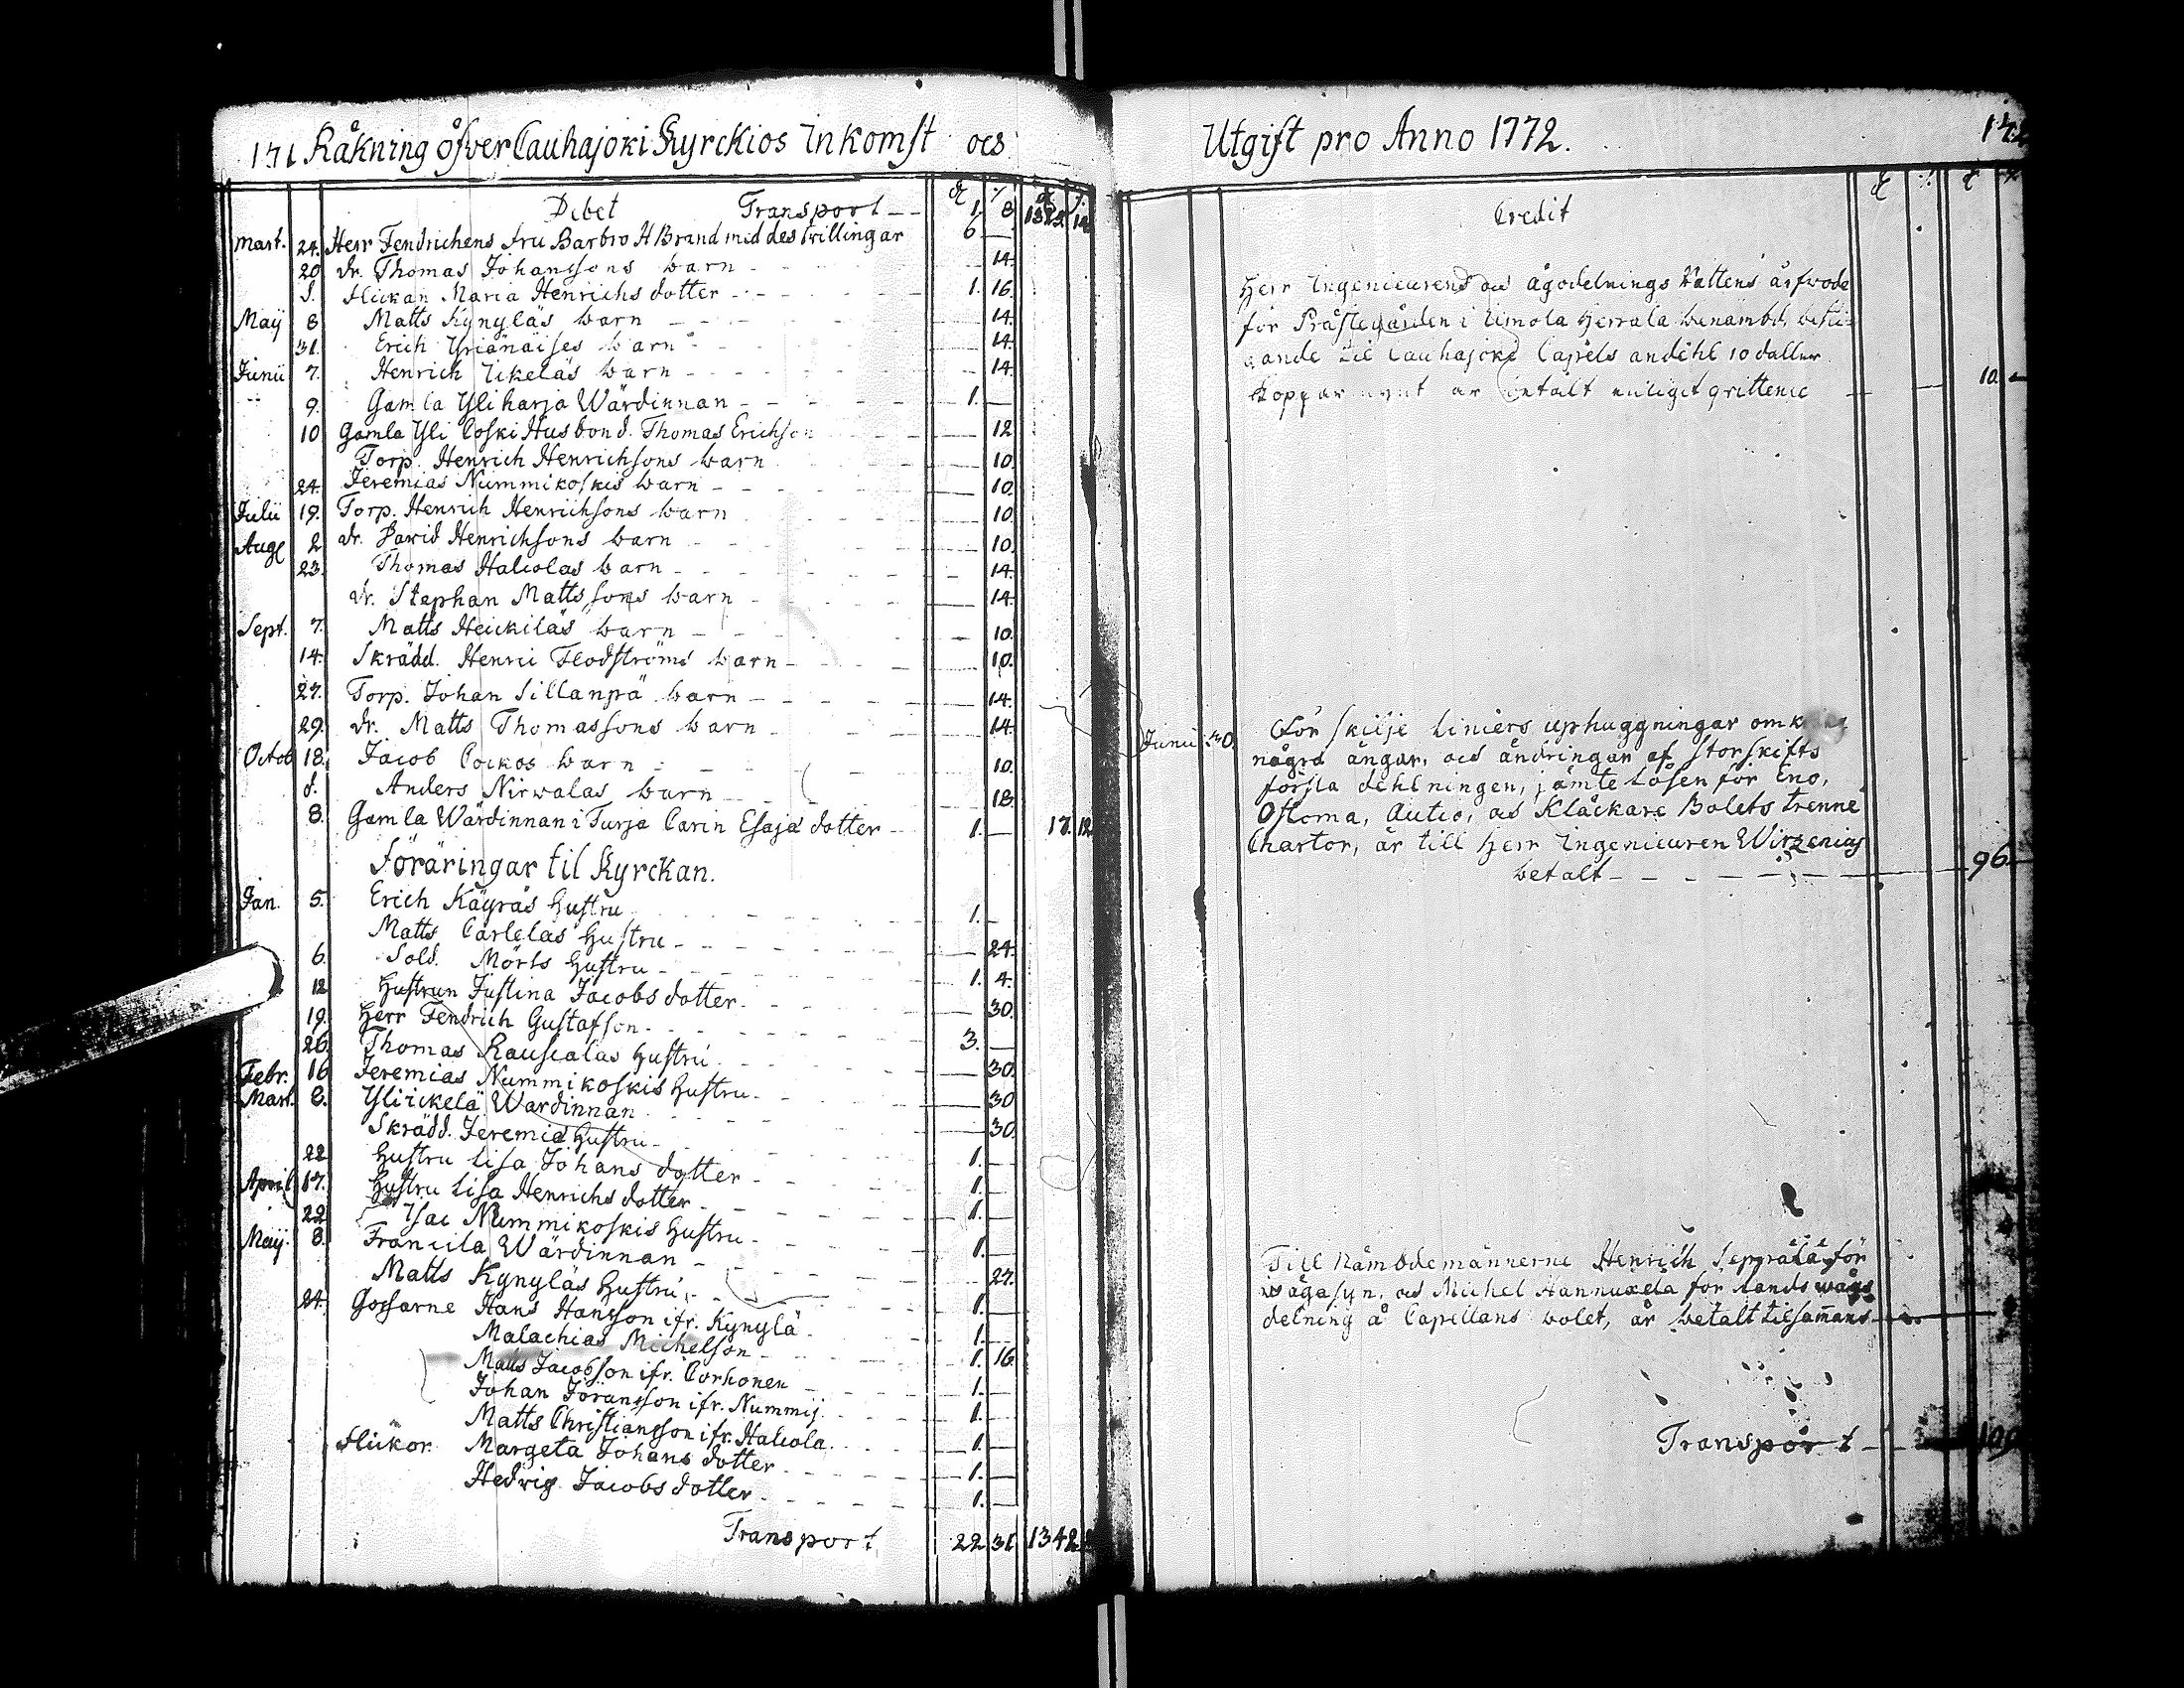 171 Råkning öfver Cauhajoki Kyrckios Inkomst och
Debet Transport 1. 8 1323. 12
Mart. 24. Herr Fendrichens fru Barbro H Brand med des trillingar 6 —
20 dr. Thomas Johanssons barn 14.
d. flickan Maria Henrichs dotter 1. 16.
Maij 8 Matts Kynyläs barn 14.
31. Erich Yrjänäises barn 14.
Junii 7. Henrich Ikeläs barn 14.
9. Gamla Yliharja Wärdinnan 1. —
10 Gamla Yli Coski Husbond. Thomas Erichson 12
Torp. Henrich Henrichsons barn 10.
24. Jeremias Nummikoskis barn 10.
Julii 19. Torp. Henrich Henrichsons barn 10
Aug. 2 dr. David Henrichsons barn 10.
23. Thomas Haliolas barn 14.
dr. Stephan Mattssons barn 14.
Sept. 7. Matts Heickiläs barn 10.
14. Skrädd. Henric Flodströms barn 10.
27. Torp. Johan Sillanpä barn 14.
29. dr. Matts Thomassons barn 14.
Octob 18. Jacob Cockos barn 10.
d. Anders Nirwalas barn 18.
8. Gamla Wärdinnan i Turja Carin Esaja dotter 1. — 17. 12
Föräringar til Kyrckan.
Jan. 5. Erich Käyräs hustru 1. —
Matts Carlelas hustru 24.
6. Sold. Mörts hustru 1. 4.
12 Hustrun Justina Jacobs dotter 30.
19. Herr Fendrich Gustafson 3. —
26. Thomas Rausialas hustru 30.
Febr. 16 Jeremias Nummikoskis hustru 30
Mart. 8. Yliickelä Wardinnan 30.
Skrädd. Jeremiæ hustru 1. —
22 hustru Lisa Johans dotter 1. —
April 17. hustru Lisa Henrichs dotter 1. —
22 Isac Nummikoskis hustru 1. —
Maij. 3. Francila Wärdinnan 27.
Matts Kynyläs hustru 1. —
24. Gossarne Hans Hansson ifr. Kynylä 1. —
Malachias Michelson 1. 16
Matts Jacobsson ifr. Corhonen 1. —
Johan Jöransson ifr. Nummij 1. —
Matts Christiansson ifr. Haliola 1. —
flickor Margeta Johans dotter 1. —
Hedwig Jacobs dotter 1. —
Transport 22 31. 1342
Utgift pro Anno 1772. 172
Credit
Herr Ingenieurens och ägodelnings Rättens årfvode
för Prästegården i Ilmola Herrala benämbd, besti-
gande til Cauhajoki Capels andehl 10 daller
koppar mynt är betalt enligit qvittence 10. —
Junii 30. För skilje liniers uphuggningar omkring
några ängar, och ändringar af Storskifts
första dehlningen, jämte lösen för Eno,
Ostoma, Autio, och Klåckare Bolets trenne
Chartor, är till Herr Ingenieuren Wirzenius
betalt 96. —
Till Nåmbdemännerne Henrich Seppälä för
wägasyn, och Michel Hannuxela för lands wägs
delning å Capellans bolet, är betalt tilsamans
Transport 109